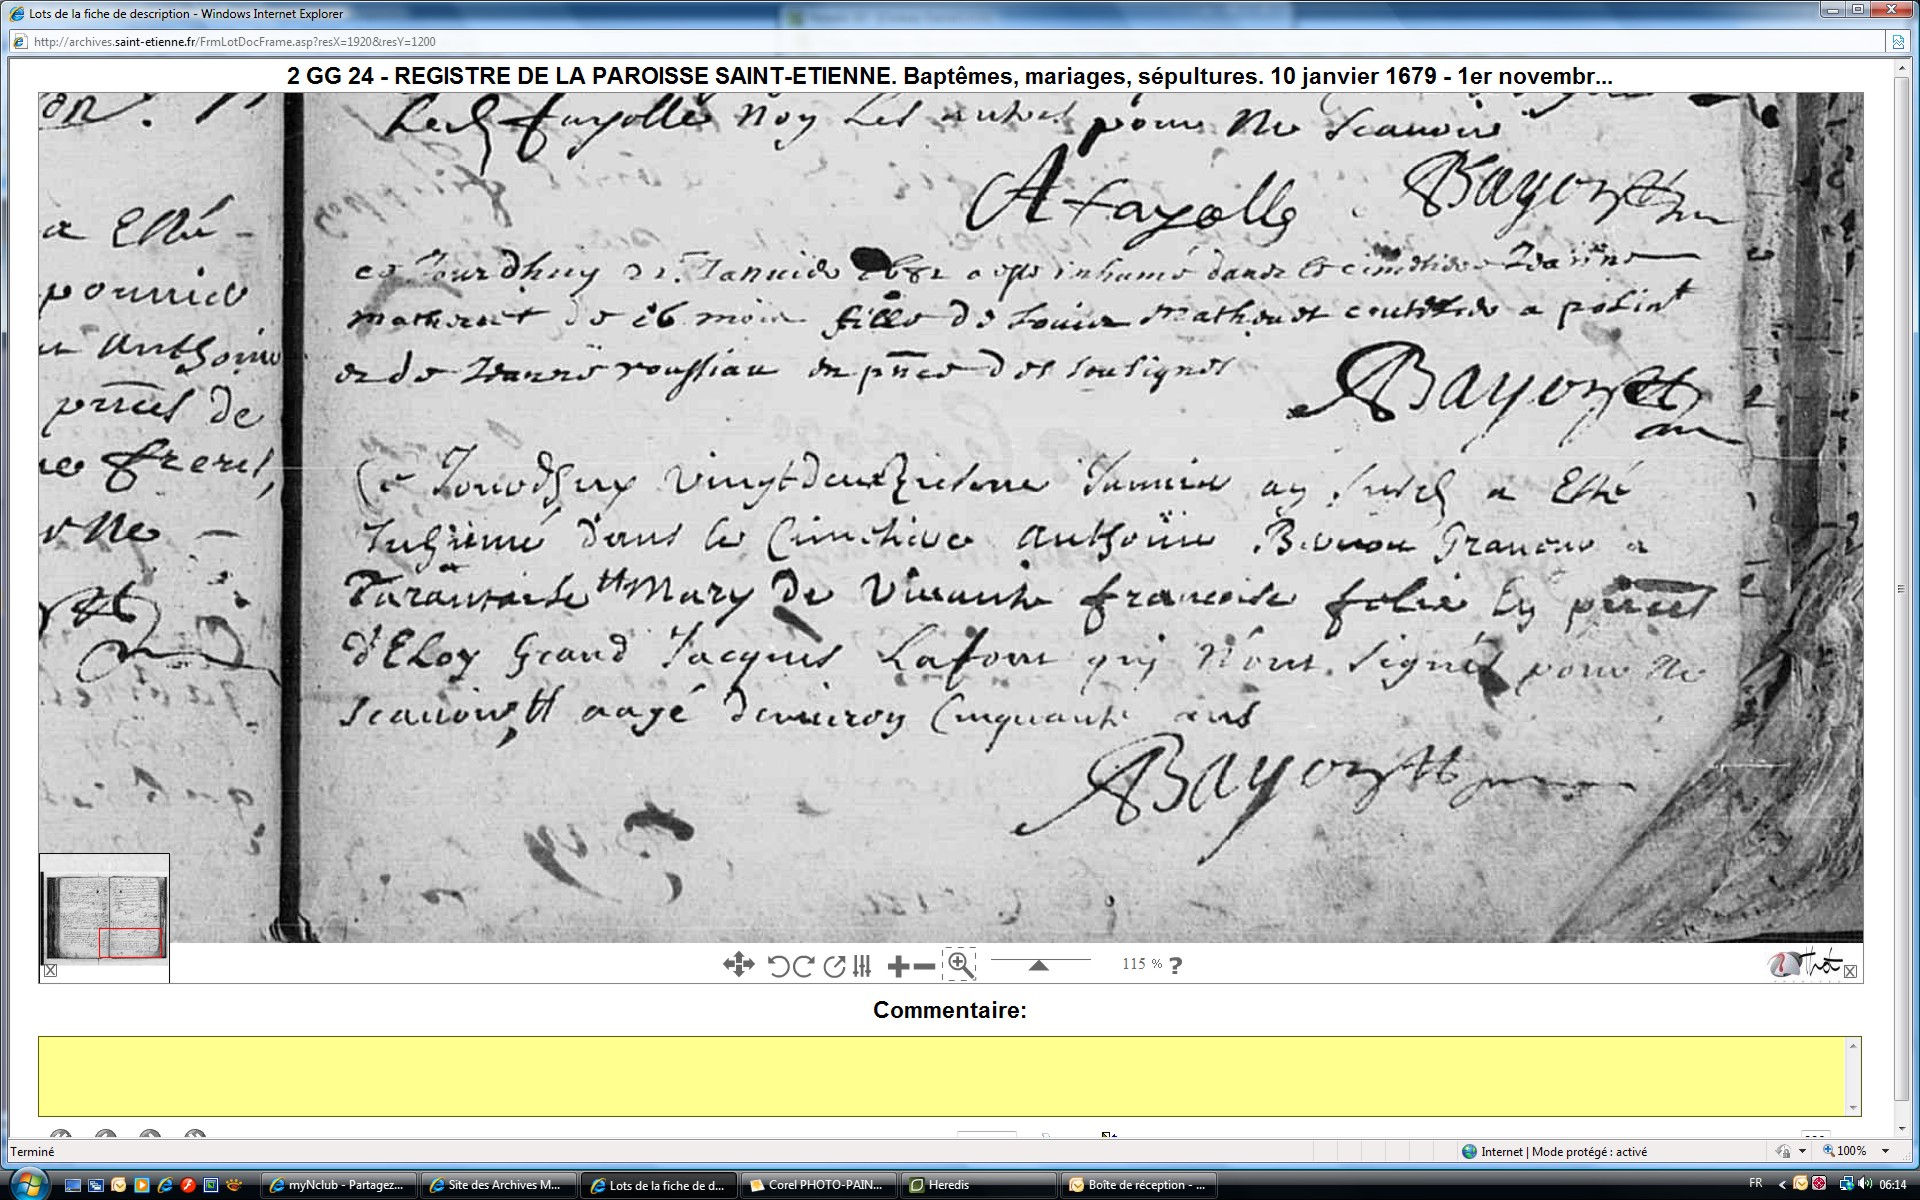 Lots de la fiche de description - Windows Internet Explorer
http://archives.saint-etienne.fr/FrmLotDocFrame.asp?resX=1920&resY=1200
2 GG 24 - REGISTRE DE LA PAROISSE SAINT-ETIENNE. Baptêmes, mariages, sépultures. 10 janvier 1679 - 1er novembr...
fayolle noy les autres pour ne scauoir
Afayolle Bayon
ce Jourdhuy 21 Januier 1682 a este inhumé dans le cimetiere Jeanne
matheuet de 16 mois fille de Louis Matheuet a
et de Jeanne roussiau en pnce des sousignes
Bayon
Ce Jourdhuy vingtdeuxiesme Januier an susd a Esté
Inhumé dans le Cimetiere anthoine a
Tarantaise Mary de Viuante francoise folie En pnces
d'Eloy Grand Jacques Lafont qui n'ont signés pour ne
scauoir aagé denuiron Cinquante ans
Bayon
a Esté
anthoine
pnces de
freres,
ne
115 % ?
Commentaire:
Terminé
Internet | Mode protégé : activé
100%
myNclub - Partagez...
Site des Archives M...
Lots de la fiche de d...
Corel PHOTO-PAIN...
Heredis
Boîte de réception - ...
FR
06:14